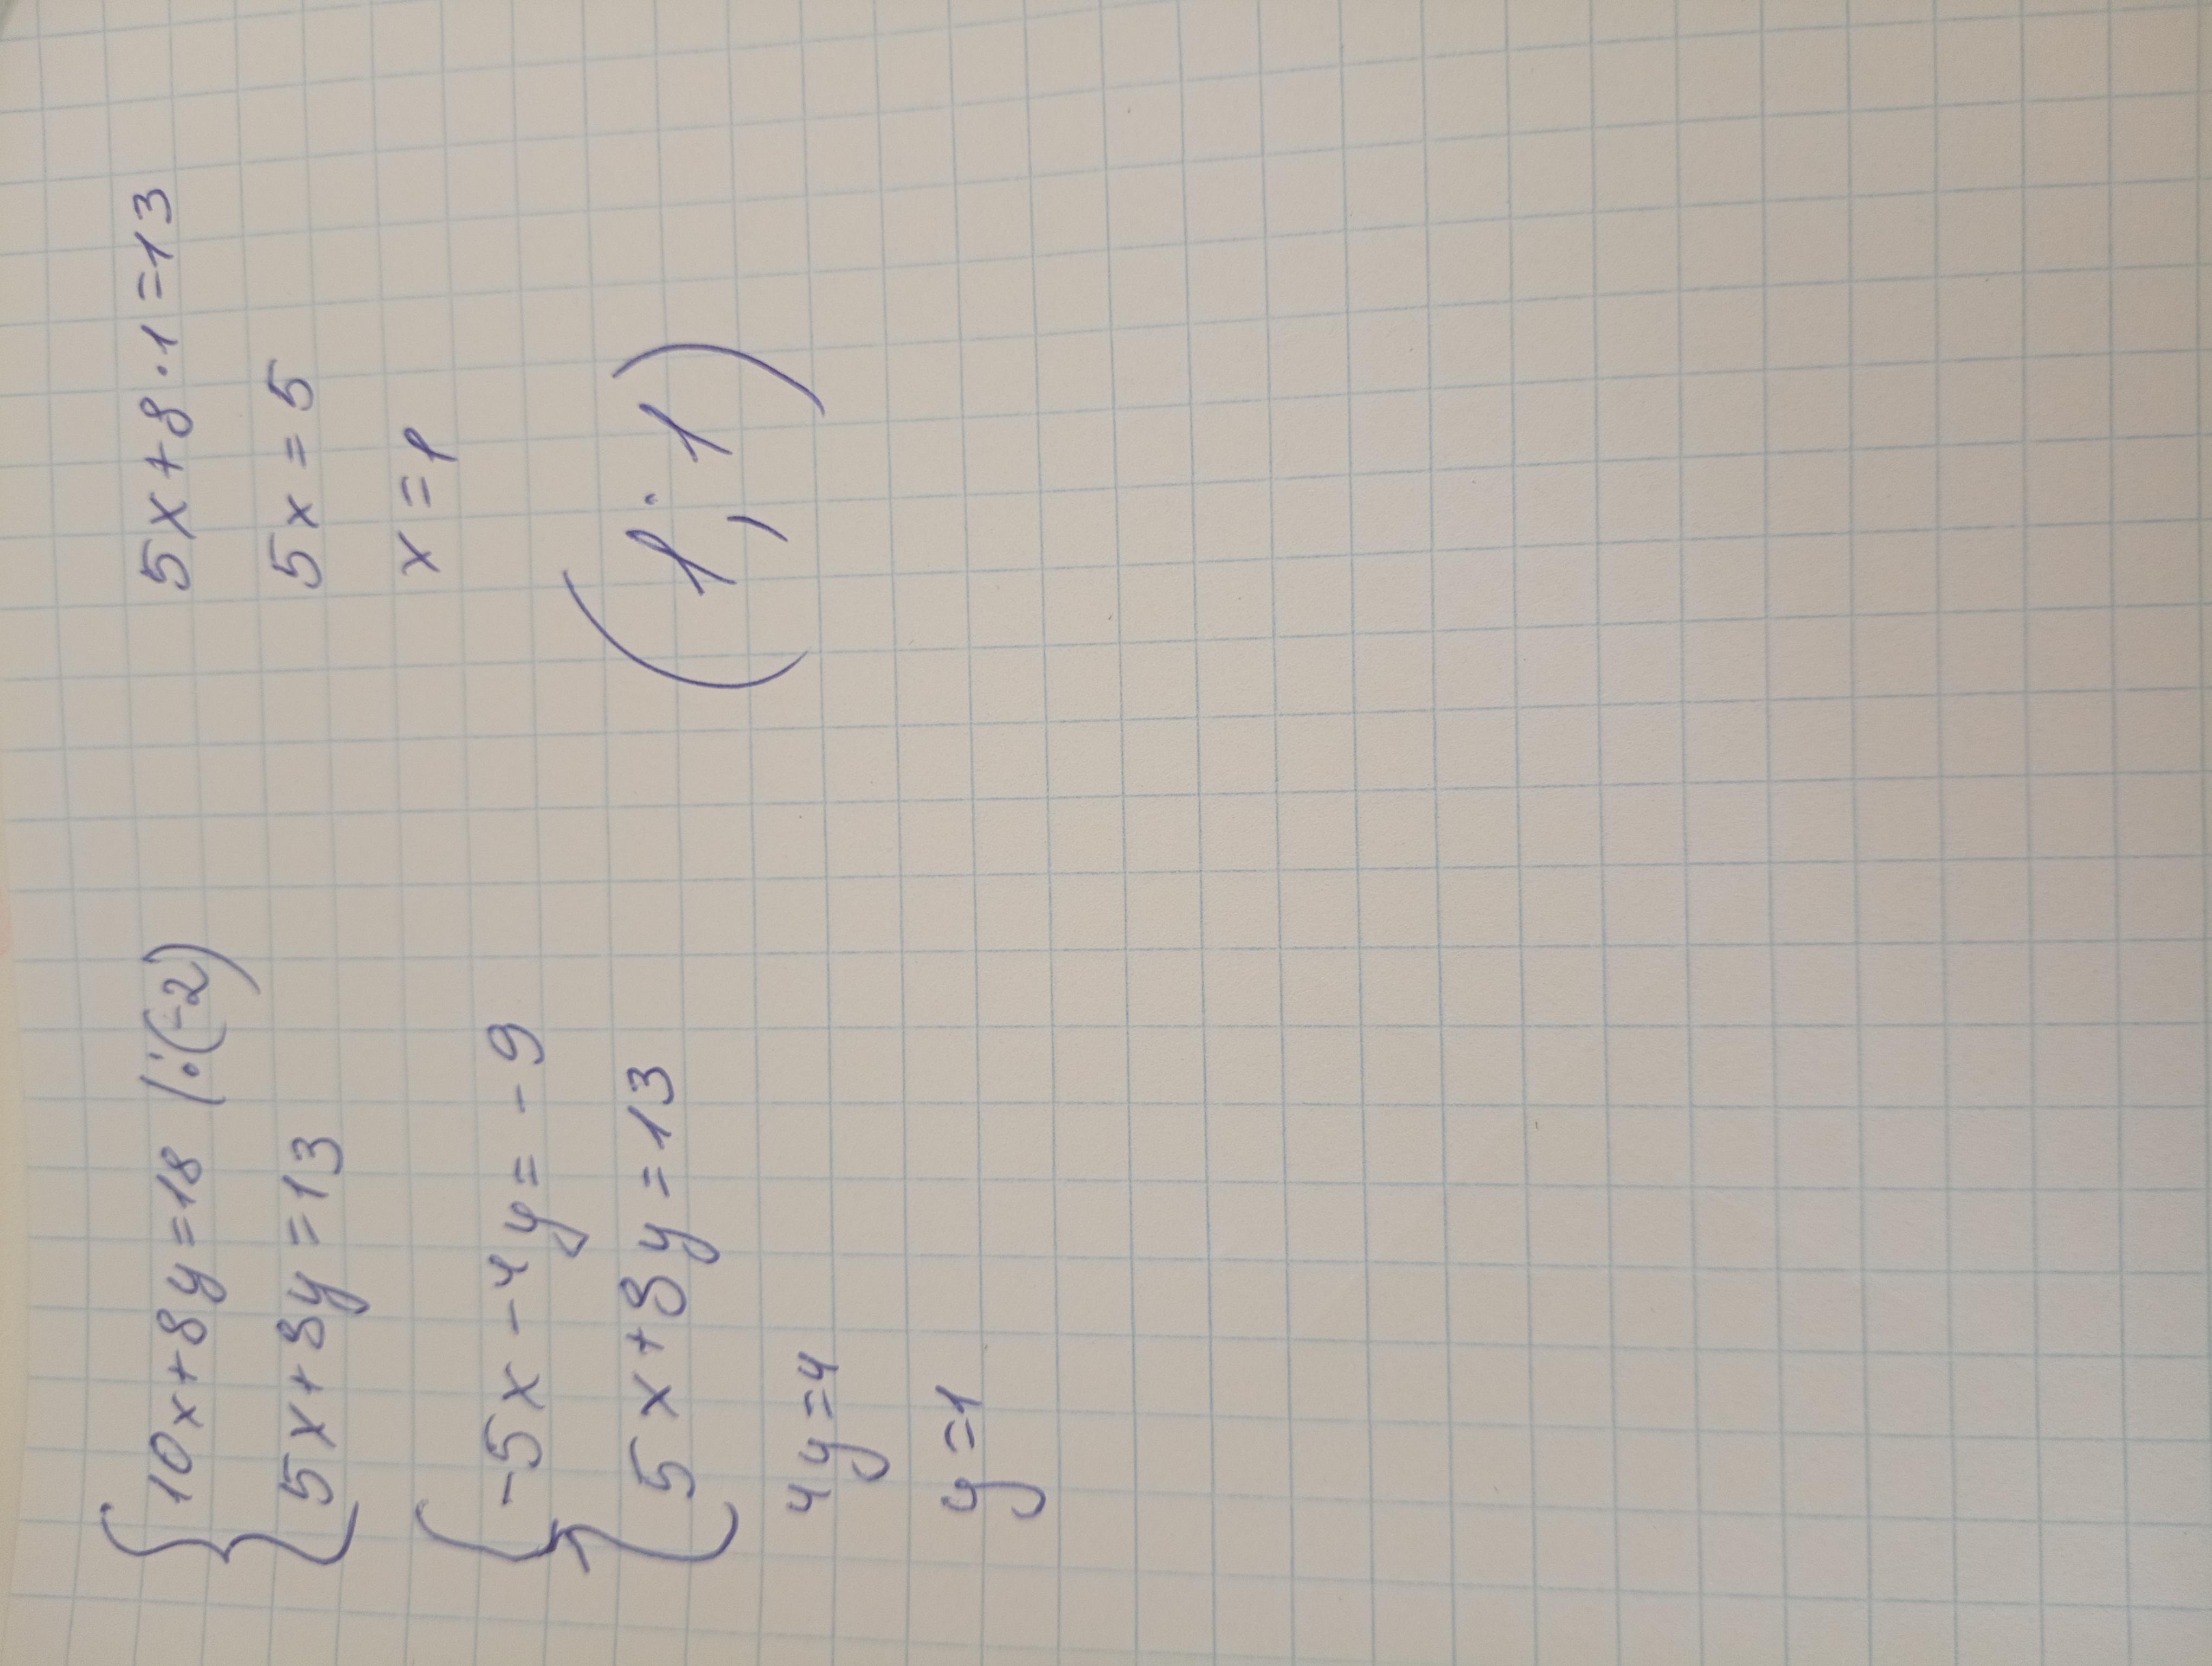 10x+8y=18 |:(-2)
5x+8y=13
-5x-4y=-9
5x+8y=13
4y=4
y=1
5x+8·1=13
5x=5
x=1
(1;1)